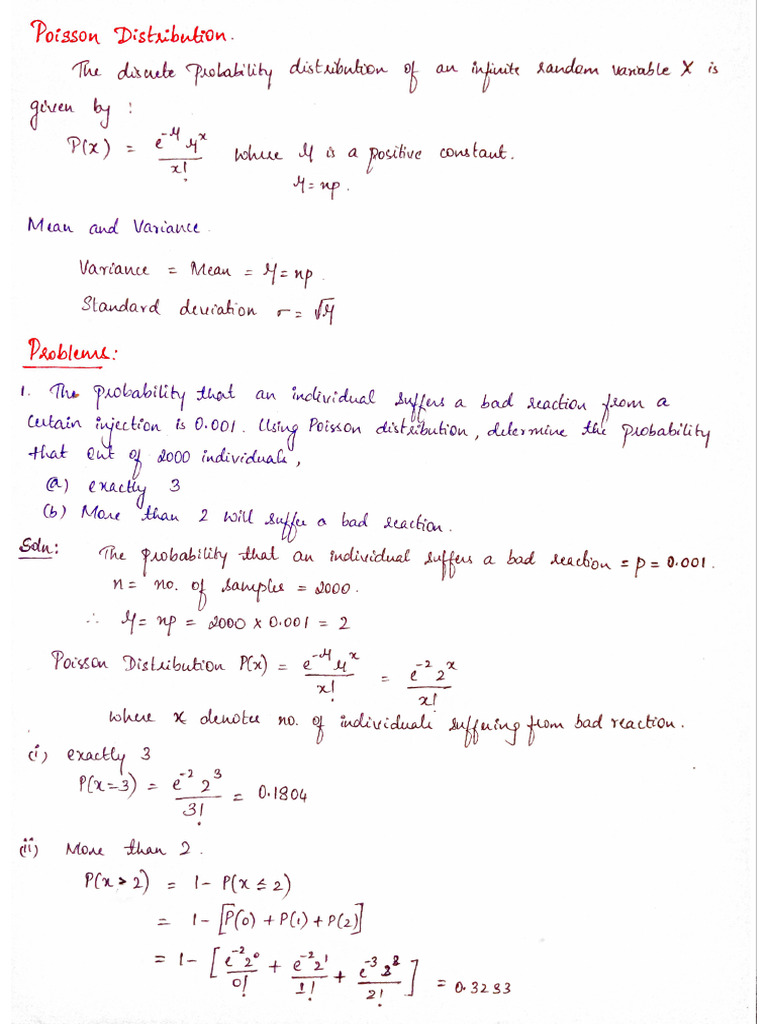 Poisson Distribution.
The discrete probability distribution of an infinite random variable X is
given by :
P(x) = e^-μ μ^x / x! where μ is a positive constant.
μ = np.
Mean and Variance.
Variance = Mean = μ = np.
Standard deviation σ = √μ
Problems:
1. The probability that an individual suffers a bad reaction from a
certain injection is 0.001. Using Poisson distribution, determine the probability
that out of 2000 individuals,
(a) exactly 3
(b) More than 2 will suffer a bad reaction.
Soln: The probability that an individual suffers a bad reaction = p = 0.001.
n = no. of samples = 2000.
∴ μ = np = 2000 x 0.001 = 2
Poisson Distribution P(x) = e^-μ μ^x / x! = e^-2 2^x / x!
where x denotes no. of individuals suffering from bad reaction.
(i) exactly 3
P(x=3) = e^-2 2^3 / 3! = 0.1804
(ii) More than 2.
P(x > 2) = 1 - P(x ≤ 2)
= 1 - [P(0) + P(1) + P(2)]
= 1 - [e^-2 2^0 / 0! + e^-2 2^1 / 1! + e^-3 2^2 / 2!] = 0.3233